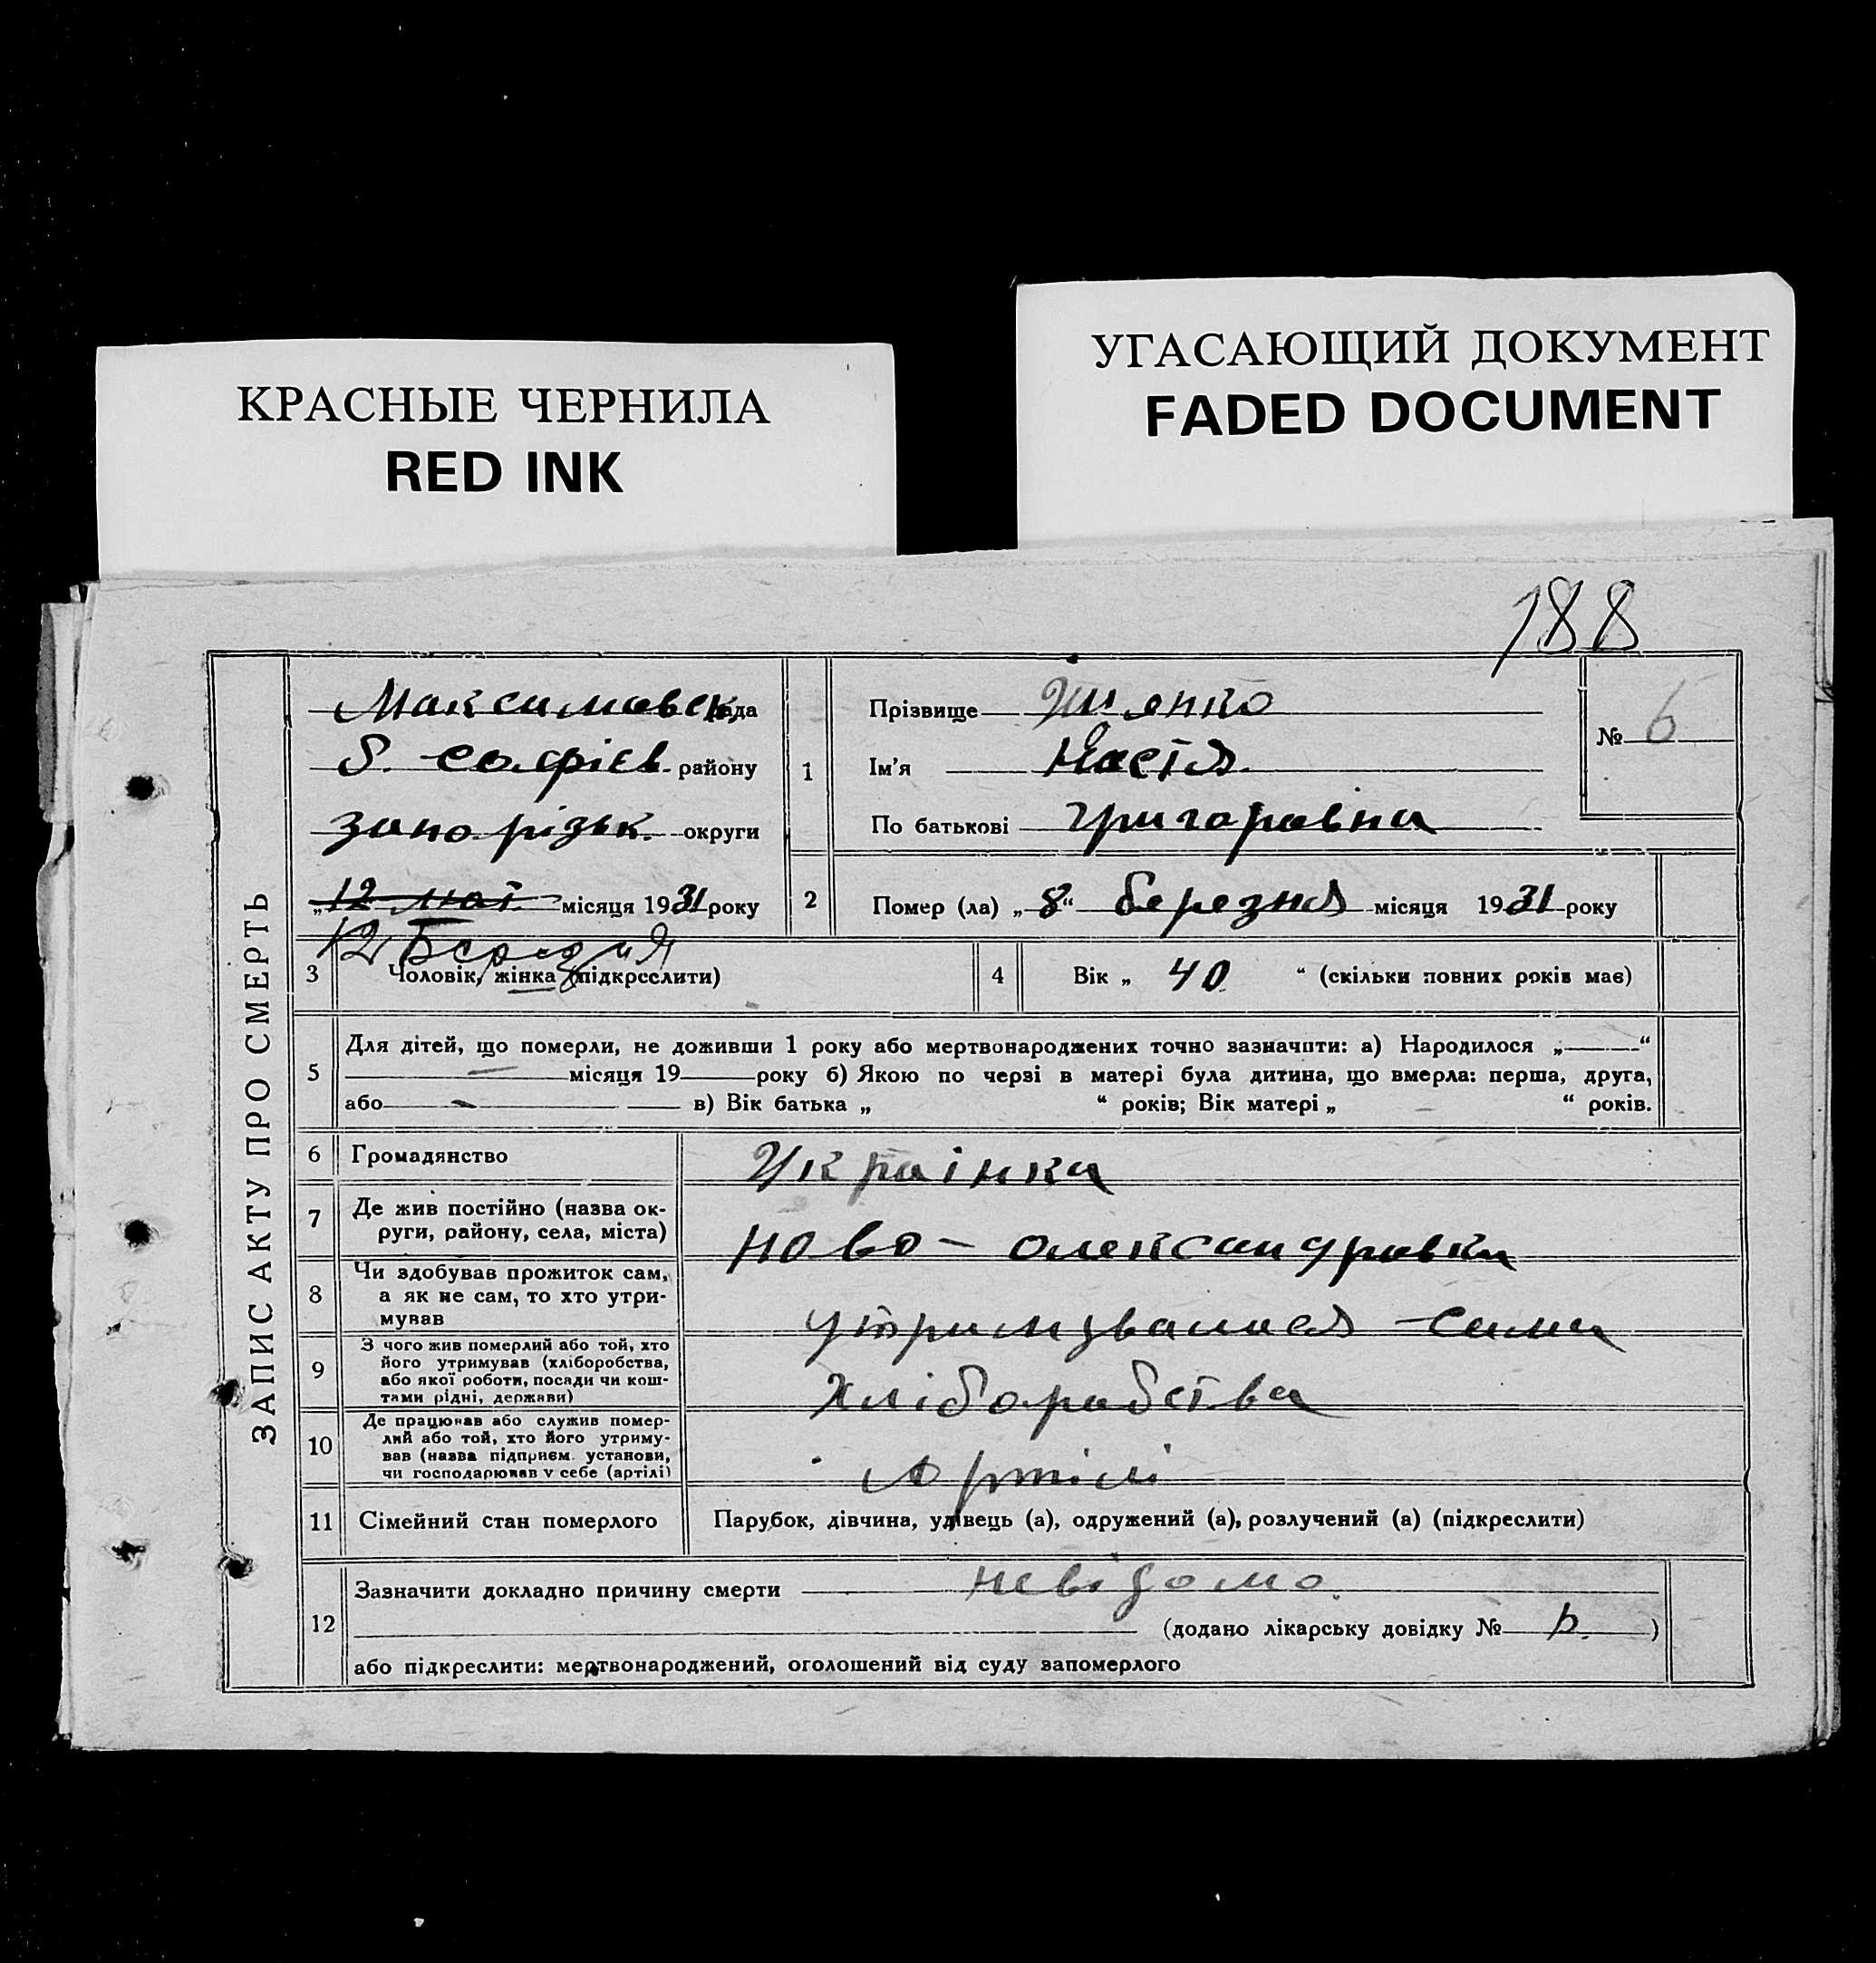 КРАСНЫЕ ЧЕРНИЛА
RED INK
УГАСАЮЩИЙ ДОКУМЕНТ
FADED DOCUMENT
188
ЗАПИС АКТУ ПРО СМЕРТЬ
Максимовск рада
б. Софієв району
запорізьк. округи
„12 лют. місяця 1931 року
12 Березня
1
Прізвище
Ім'я Настя
По батькові Григоровна
№ 6
2 Помер (ла) „8“ березня місяця 1931 року
3 Чоловік, жінка (підкреслити)
4 Вік „ 40 “ (скільки повних років має)
5 Для дітей, що померли, не доживши 1 року або мертвонароджених точно зазначити: а) Народилося „—“
— місяця 19 року б) Якою по черзі в матері була дитина, що вмерла: перша, друга,
або — в) Вік батька „ “ років; Вік матері „ “ років.
6 Громадянство Украінка
7 Де жив постійно (назва ок-
руги, району, села, міста) Ново - Олександровка
8 Чи здобував прожиток сам,
а як не сам, то хто утри-
мував утримувалася сама
9 З чого жив померлий або той, хто
його утримував (хліборобства,
або якої роботи, посади чи кош-
тами рідні, держави) Хліборобства
10 Де працював або служив помер-
лий або той, хто його утриму-
вав (назва підприєм. установи,
чи господарював у себе (артілі) Артілі
11 Сімейний стан померлого Парубок, дівчина, удівець (а), одружений (а), розлучений (а) (підкреслити)
12 Зазначити докладно причину смерти невідомо
(додано лікарську довідку № )
або підкреслити: мертвонароджений, оголошений від суду запомерлого